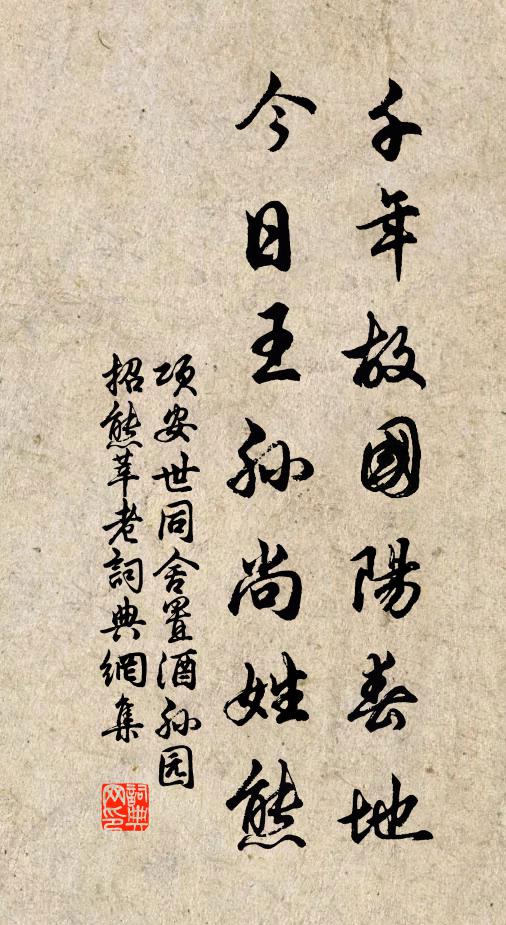 千年故國陽春地
今日王孙尚姓熊
项安世同舍置酒孙园
招熊莘老詞典網集
詞典网印